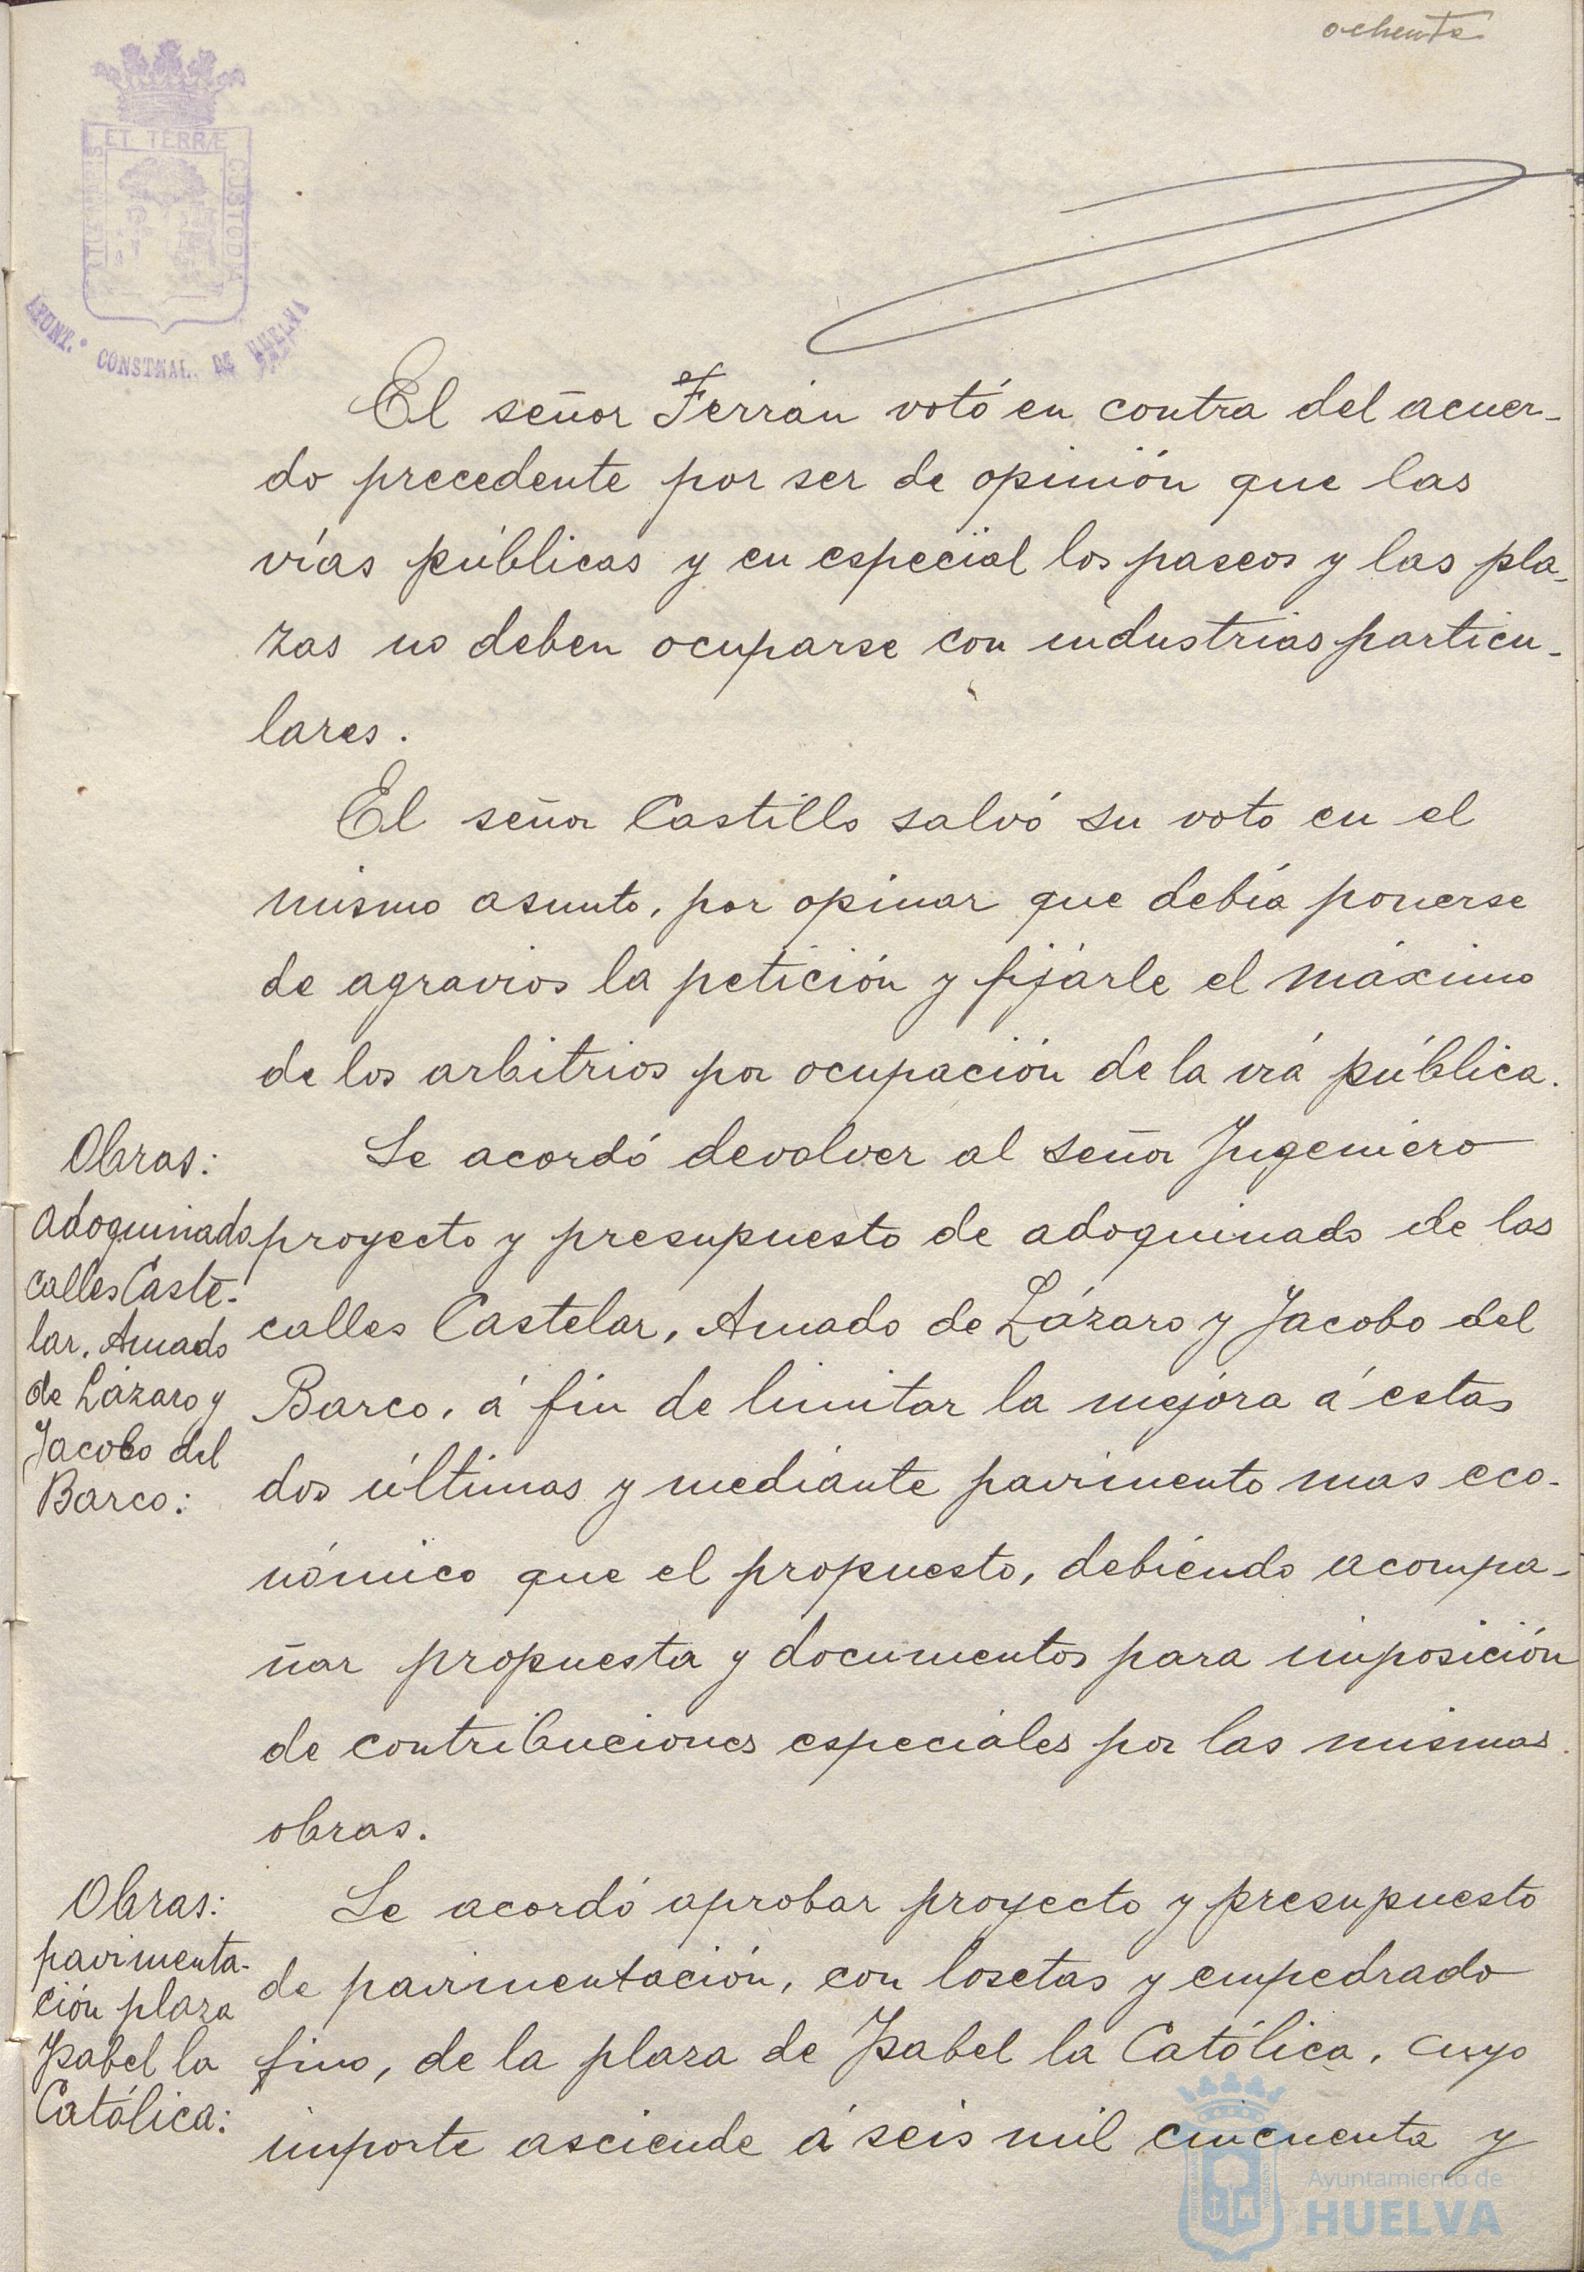 ochenta
ET TERRÆ
CUSTODIA
AYUNT. CONSTNAL. DE HUELVA
El señor Ferrán votó en contra del acuer-
do precedente por ser de opinión que las
vías públicas y en especial los paseos y las pla-
zas no deben ocuparse con industrias particu-
lares.
El señor Castillo salvó su voto en el
mismo asunto, por opinar que debía ponerse
de agravios la petición y fijárle el máximo
de los arbitrios por ocupación de la vía pública.
Obras:
Adoquinado
calles Caste-
lar, Amado
de Lázaro y
Jacobo del
Barco:
Se acordó devolver al señor Ingeniero
proyecto y presupuesto de adoquinado de las
calles Castelar, Amado de Lázaro y Jacobo del
Barco, á fin de limitar la mejora á estas
dos últimas y mediante pavimento mas eco-
nómico que el propuesto, debiendo acompa-
ñar propuesta y documentos para imposición
de contribuciones especiales por las mismas
obras.
Obras:
pavimenta-
ción plaza
Isabel la
Católica:
Se acordó aprobar proyecto y presupuesto
de pavimentación, con losetas y empedrado
fino, de la plaza de Isabel la Católica, cuyo
importe asciende á seis mil cincuenta y
Ayuntamiento de
HUELVA